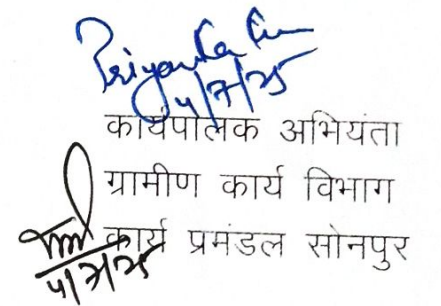 Priyanka
4/7/25
कार्यपालक अभियंता
ग्रामीण कार्य विभाग
कार्य प्रमंडल सोनपुर
4/7/25